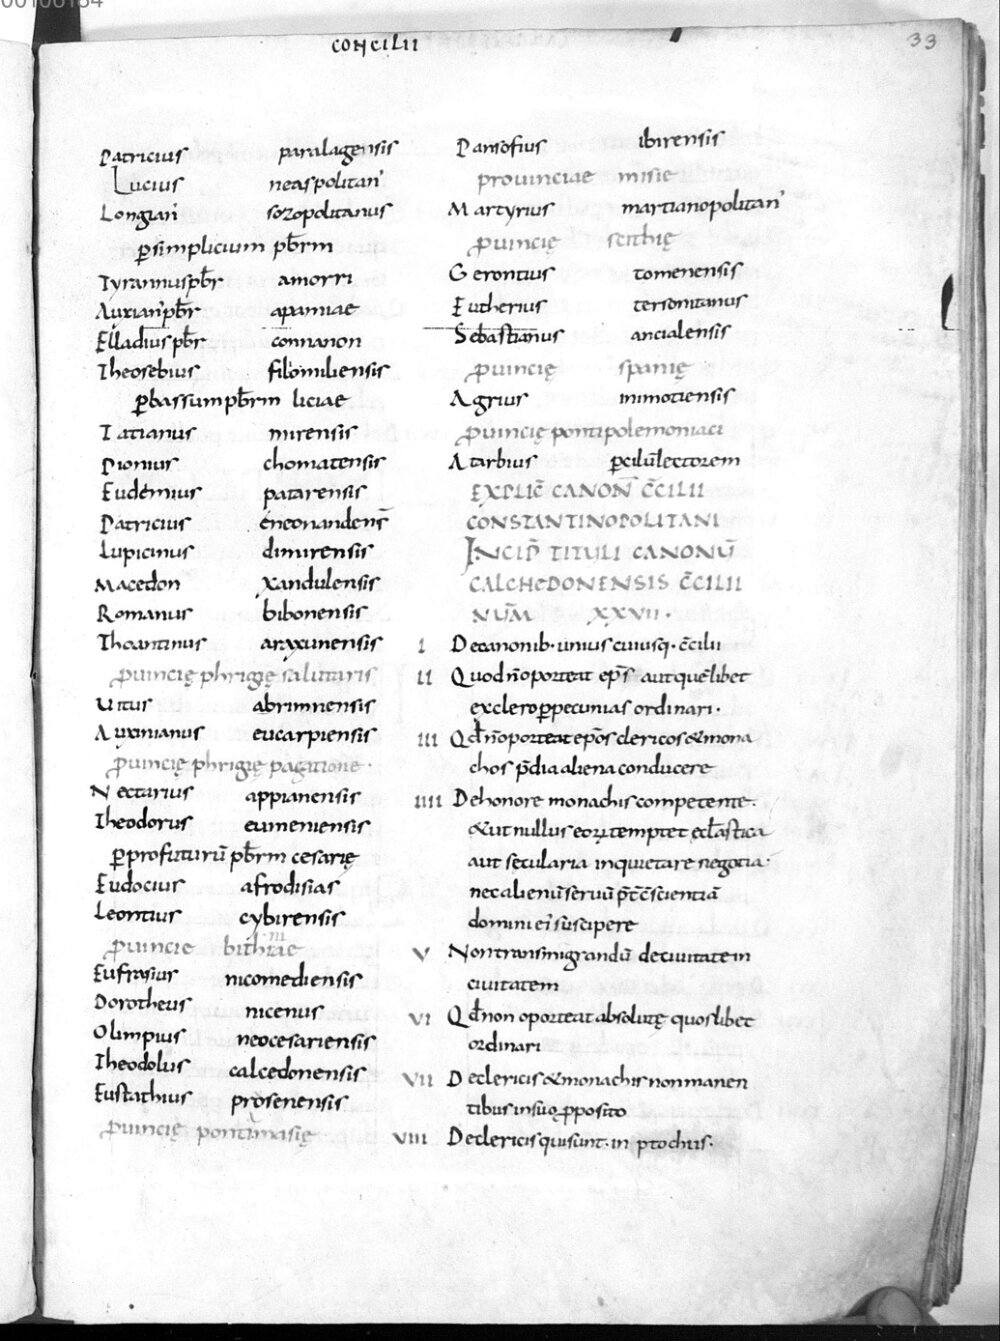 CONCILII
33
Patricius paralagensis
Lucius neaspolitan'
Longian' sozopolitanus
p̲simplicium pb̅rm
Tyrannus pb̅r amorri
Auxian' pb̅r apamiae
Elladius pb̅r connanon
Theosebius filomiliensis
p̲bassum pb̅rm liciae
Tatianus mirensis
Pionius chomatensis
Eudemius patarensis
Patricius eneonandens̅
Lupicinus dimirensis
Macedon xandulensis
Romanus bibonensis
Thoantinus araxunensis
p̲uincię phrigię salutaris
Vitus abrimnensis
Auxinianus eucarpiensis
p̲uincię phrigię pagatione·
Nectarius appianensis
Theodorus eumeniensis
p̲profuturu̅ pb̅rm cesarię
Eudocius afrodisias
Leontius cybirensis
p̲uincie bithinie
Eufrasius nicomediensis
Dorotheus nicenus
Olimpius neocesariensis
Theodolus calcedonensis
Eustathius prosenensis
p̲uincię ponti masię
Pansofius ibirensis
prouinciae misie
Martyrius martianopolitan'
p̲uincię scithię
Gerontius tomenensis
Eutherius tersonitanus
Sebastianus ancialensis
p̲uincię spanię
Agrius inimotiensis
p̲uincię ponti polemoniaci
Atarbius p̲cilu̅lectorem
EXPLIC̅ CANON̅ C̅CILII
CONSTANTINOPOLITANI
INCIP̅ TITULI CANONU̅
CALCHEDONENSIS C̅CILII
NUM̅ XXVII·
I Decanonib· unius cuiusq· c̅cilii
II Quod n̅ oporteat ep̅s aut que̅libet
exclero p̲pecunias ordinari·
III Qd̅ n̅ oporteat ep̅os clericos & mona
chos p̅dia aliena conducere
IIII Dehonore monachis competente·
& ut nullus eoꝝ temptet ecl̅astica
aut secularia inquietare negotia·
nec alienu̅ seruu̅ p̅t̅ c̅scientia̅
domini ei' suscipere
V Nontransmigrandu̅ deciuitate in
ciuitatem
VI Qd̅ non oporteat absolutę quoslibet
ordinari
VII Declericis & monachis non manen
tibus insuo p̲posito
VIII Declericis qui sunt· in ptochiis·